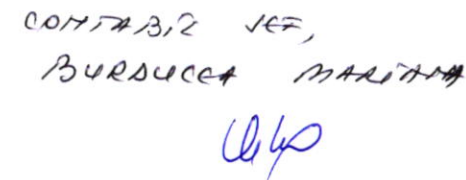 CONTABIL SEF,
BURDUCEA MARIANA